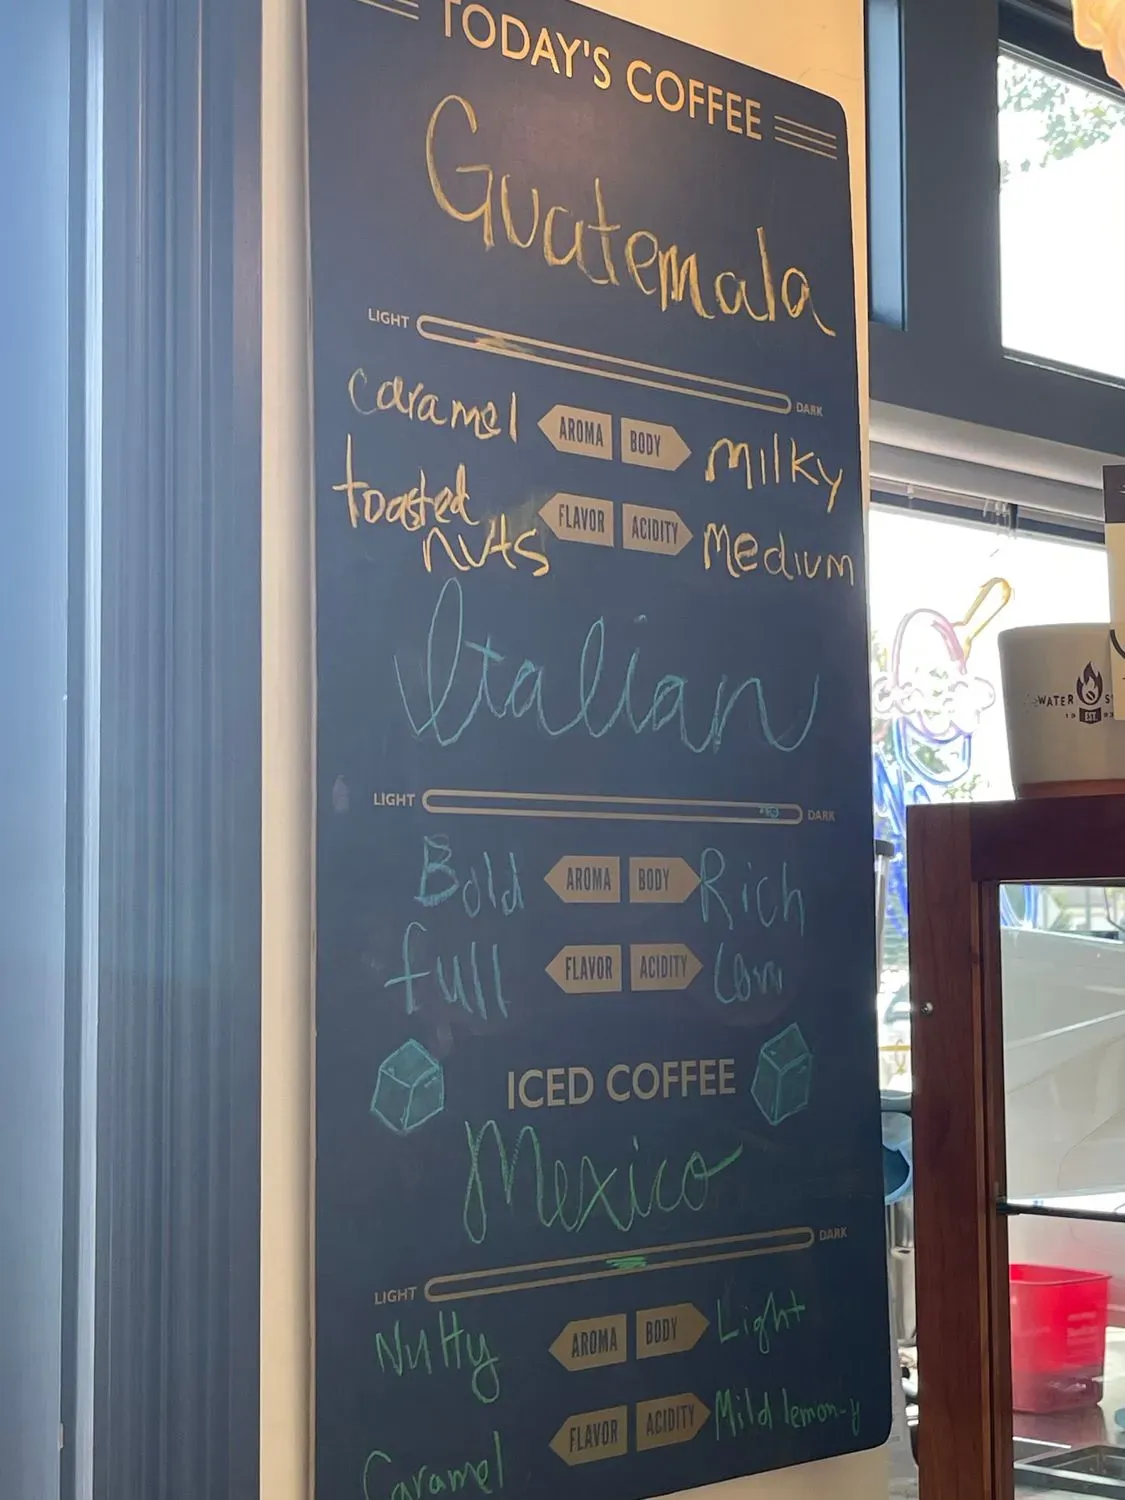 TODAY'S COFFEE
Guatemala
LIGHT DARK
caramel AROMA BODY Milky
toasted nuts FLAVOR ACIDITY Medium
Italian
LIGHT DARK
Bold AROMA BODY Rich
full FLAVOR ACIDITY Low
ICED COFFEE
Mexico
LIGHT DARK
Nutty AROMA BODY Light
Caramel FLAVOR ACIDITY Mild lemon-y
WATER
EST.